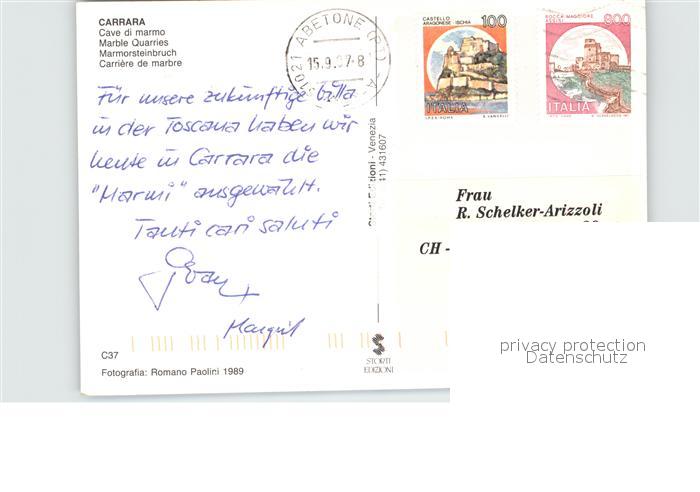 CARRARA
Cave di marmo
Marble Quarries
Marmorsteinbruch
Carrière de marbre
Für unsere zukünftige billa
in der Toscana haben wir
heute in Carrara die
"Marmi" ausgewählt.
Tanti cari saluti
Margrit
C37
Fotografia: Romano Paolini 1989
51021 ABETONE (PT)
15.9.97-8
A
Edizioni - Venezia
41) 431607
STORTI
EDIZIONI
CASTELLO
ARAGONESE - ISCHIA
100
ITALIA
I.P.Z.S. ROMA
E. VANGELLI
ROCCA MAGGIORE
ASSISI
800
ITALIA
Frau
R. Schelker-Arizzoli
CH -
privacy protection
Datenschutz